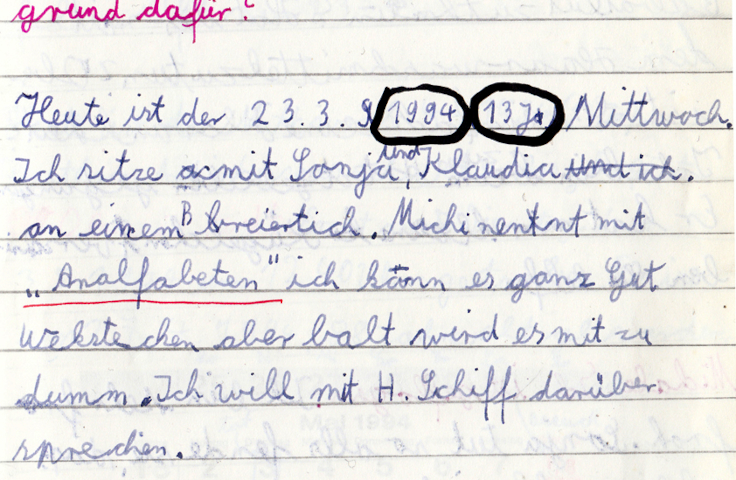 grund dafür?
Heute ist der 23.3.9 1994 13 Ja Mittwoch.
Ich sitze mit Sonja und Klaudia und ich.
an einem Breiertich. Michi nentnt mit
„Analfabeten" ich kann es ganz Gut
Wekstechen aber balt wird es mit zu
dumm. Ich will mit H. Schiff darüber
sprechen.